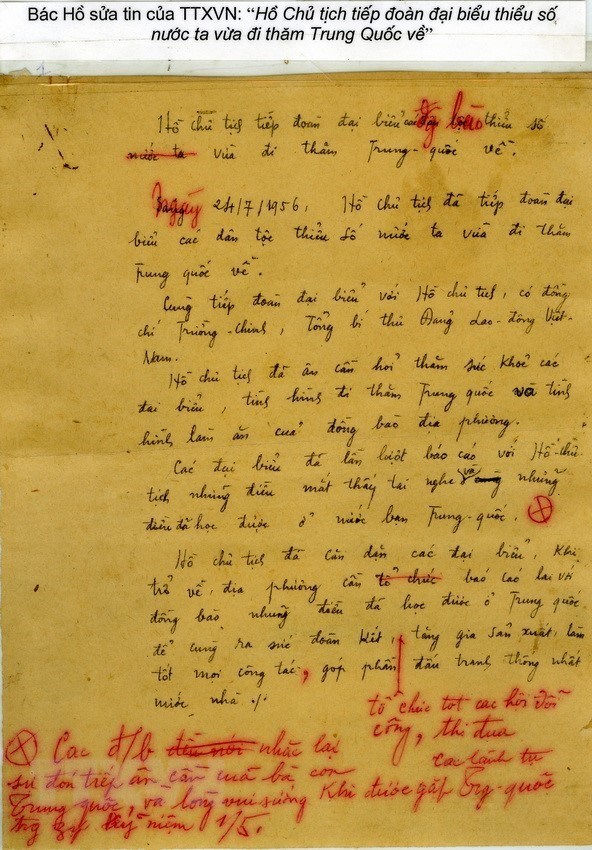 Bác Hồ sửa tin của TTXVN: "Hồ Chủ tịch tiếp đoàn đại biểu thiểu số
nước ta vừa đi thăm Trung Quốc về"
Hồ chủ tịch tiếp đoàn đại biểu đg bào thiểu số
nước ta vừa đi thăm Trung-quốc về.
Ngày 24/7/1956, Hồ chủ tịch đã tiếp đoàn đại
biểu các dân tộc thiểu số nước ta vừa đi thăm
Trung quốc về.
Cùng tiếp đoàn đại biểu với Hồ chủ tịch, có đồng
chí Trường-chinh, Tổng bí thư Đảng Lao-động Việt-
Nam.
Hồ chủ tịch đã ân cần hỏi thăm sức khoẻ các
đại biểu, tình hình đi thăm Trung quốc và tình
hình làm ăn của đồng bào địa phương.
Các đại biểu đã lần lượt báo cáo với Hồ-chủ-
tịch những điều mắt thấy tai nghe và những
điều đã học được ở nước bạn Trung-quốc. ⊗
Hồ chủ tịch đã căn dặn các đại biểu, khi
trở về địa phương cần tổ chức báo cáo lại với
đồng bào những điều đã học được ở Trung quốc
để cùng ra sức đoàn kết, tăng gia sản xuất, làm
tốt mọi công tác, góp phần đấu tranh thống nhất
nước nhà ./.
tổ chức tot cac hội đổi
công, thi đua
⊗ Cac đ/b đều nói nhắc lại
sự đón tiếp ân cần của bà con
Trung quốc, và lòng vui sướng khi được gặp cac lãnh tụ Trg-quốc
trg dịp kỷ niệm 1/5.